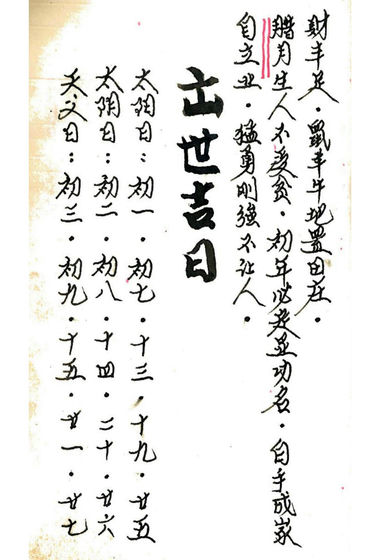 財丰足．鼠羊牛地置田庄．
腊月生人不受贫．初年必功名．自手成家
自立业．猛勇刚強不让人．
出世吉日
太阳日：初一．初七．十三．十九．廿五
太阴日：初二．初八．十四．二十．廿六
天父日：初三．初九．十五．廿一．廿七